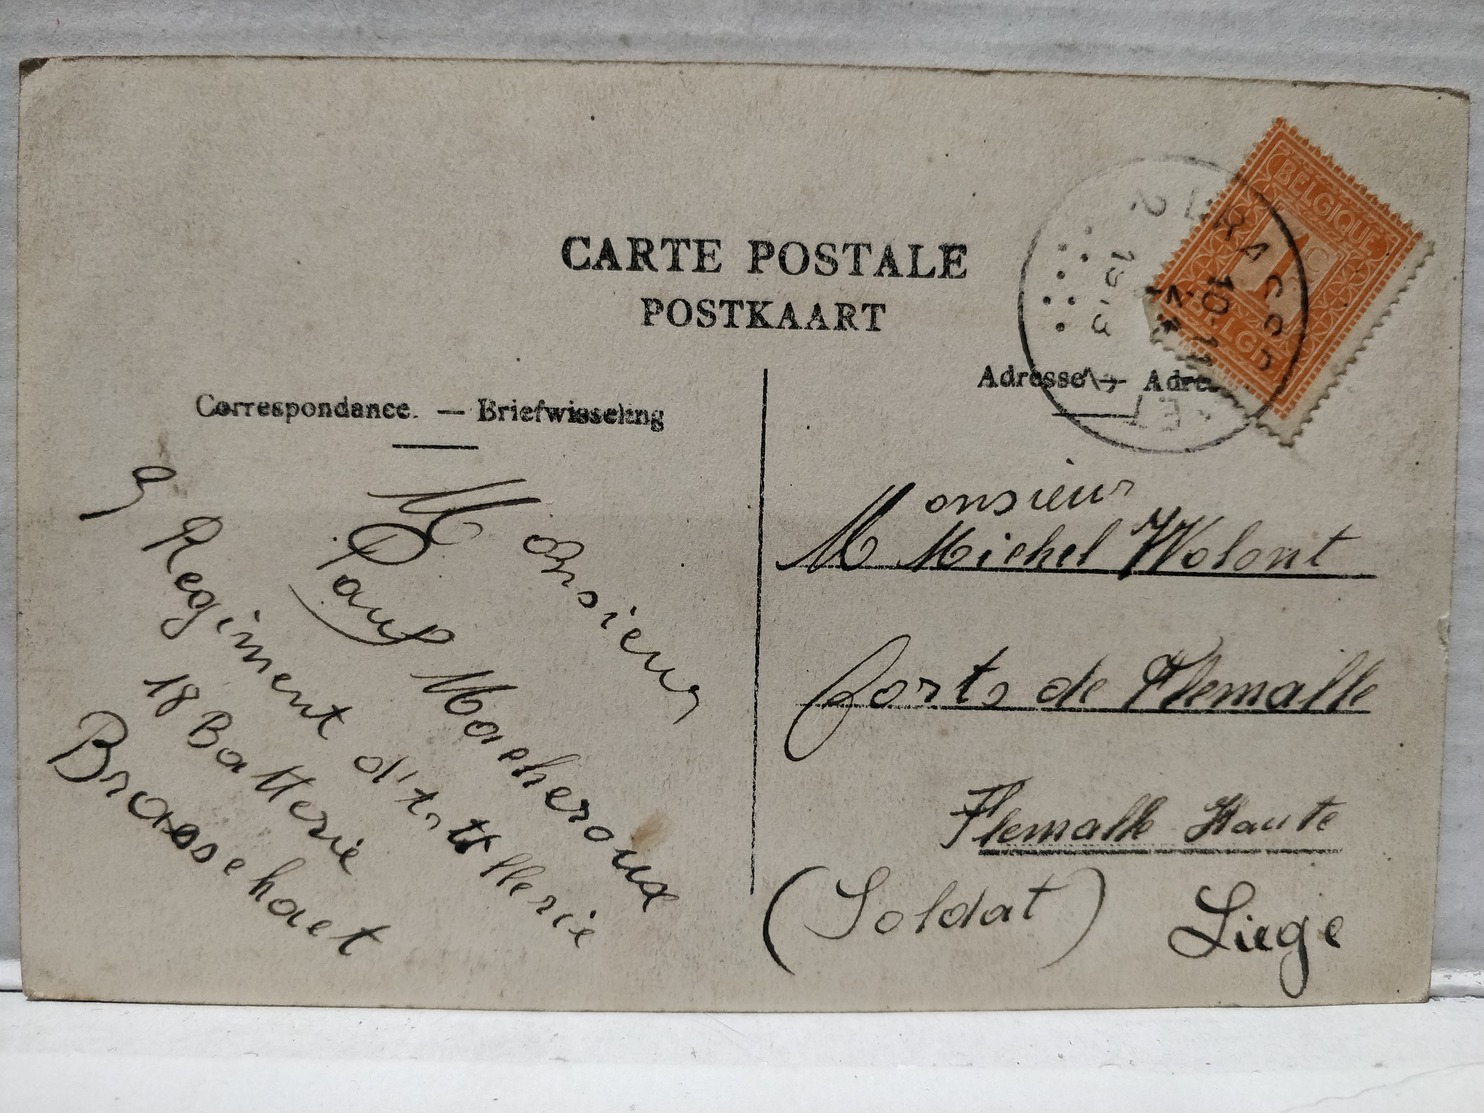 CARTE POSTALE
POSTKAART
Correspondance. — Briefwisseling
Adresse — Adres
BELGIQUE
1 C
BELGIË
BRASSCHAET
2
10-11
1913
Monsieur
Paul Macheroux
Regiment d'artillerie
18 Batterie
Brasschaet
Monsieur
M Michel Wolont
forts de Flemalle
Flemalle Haute
(Soldat) Liege